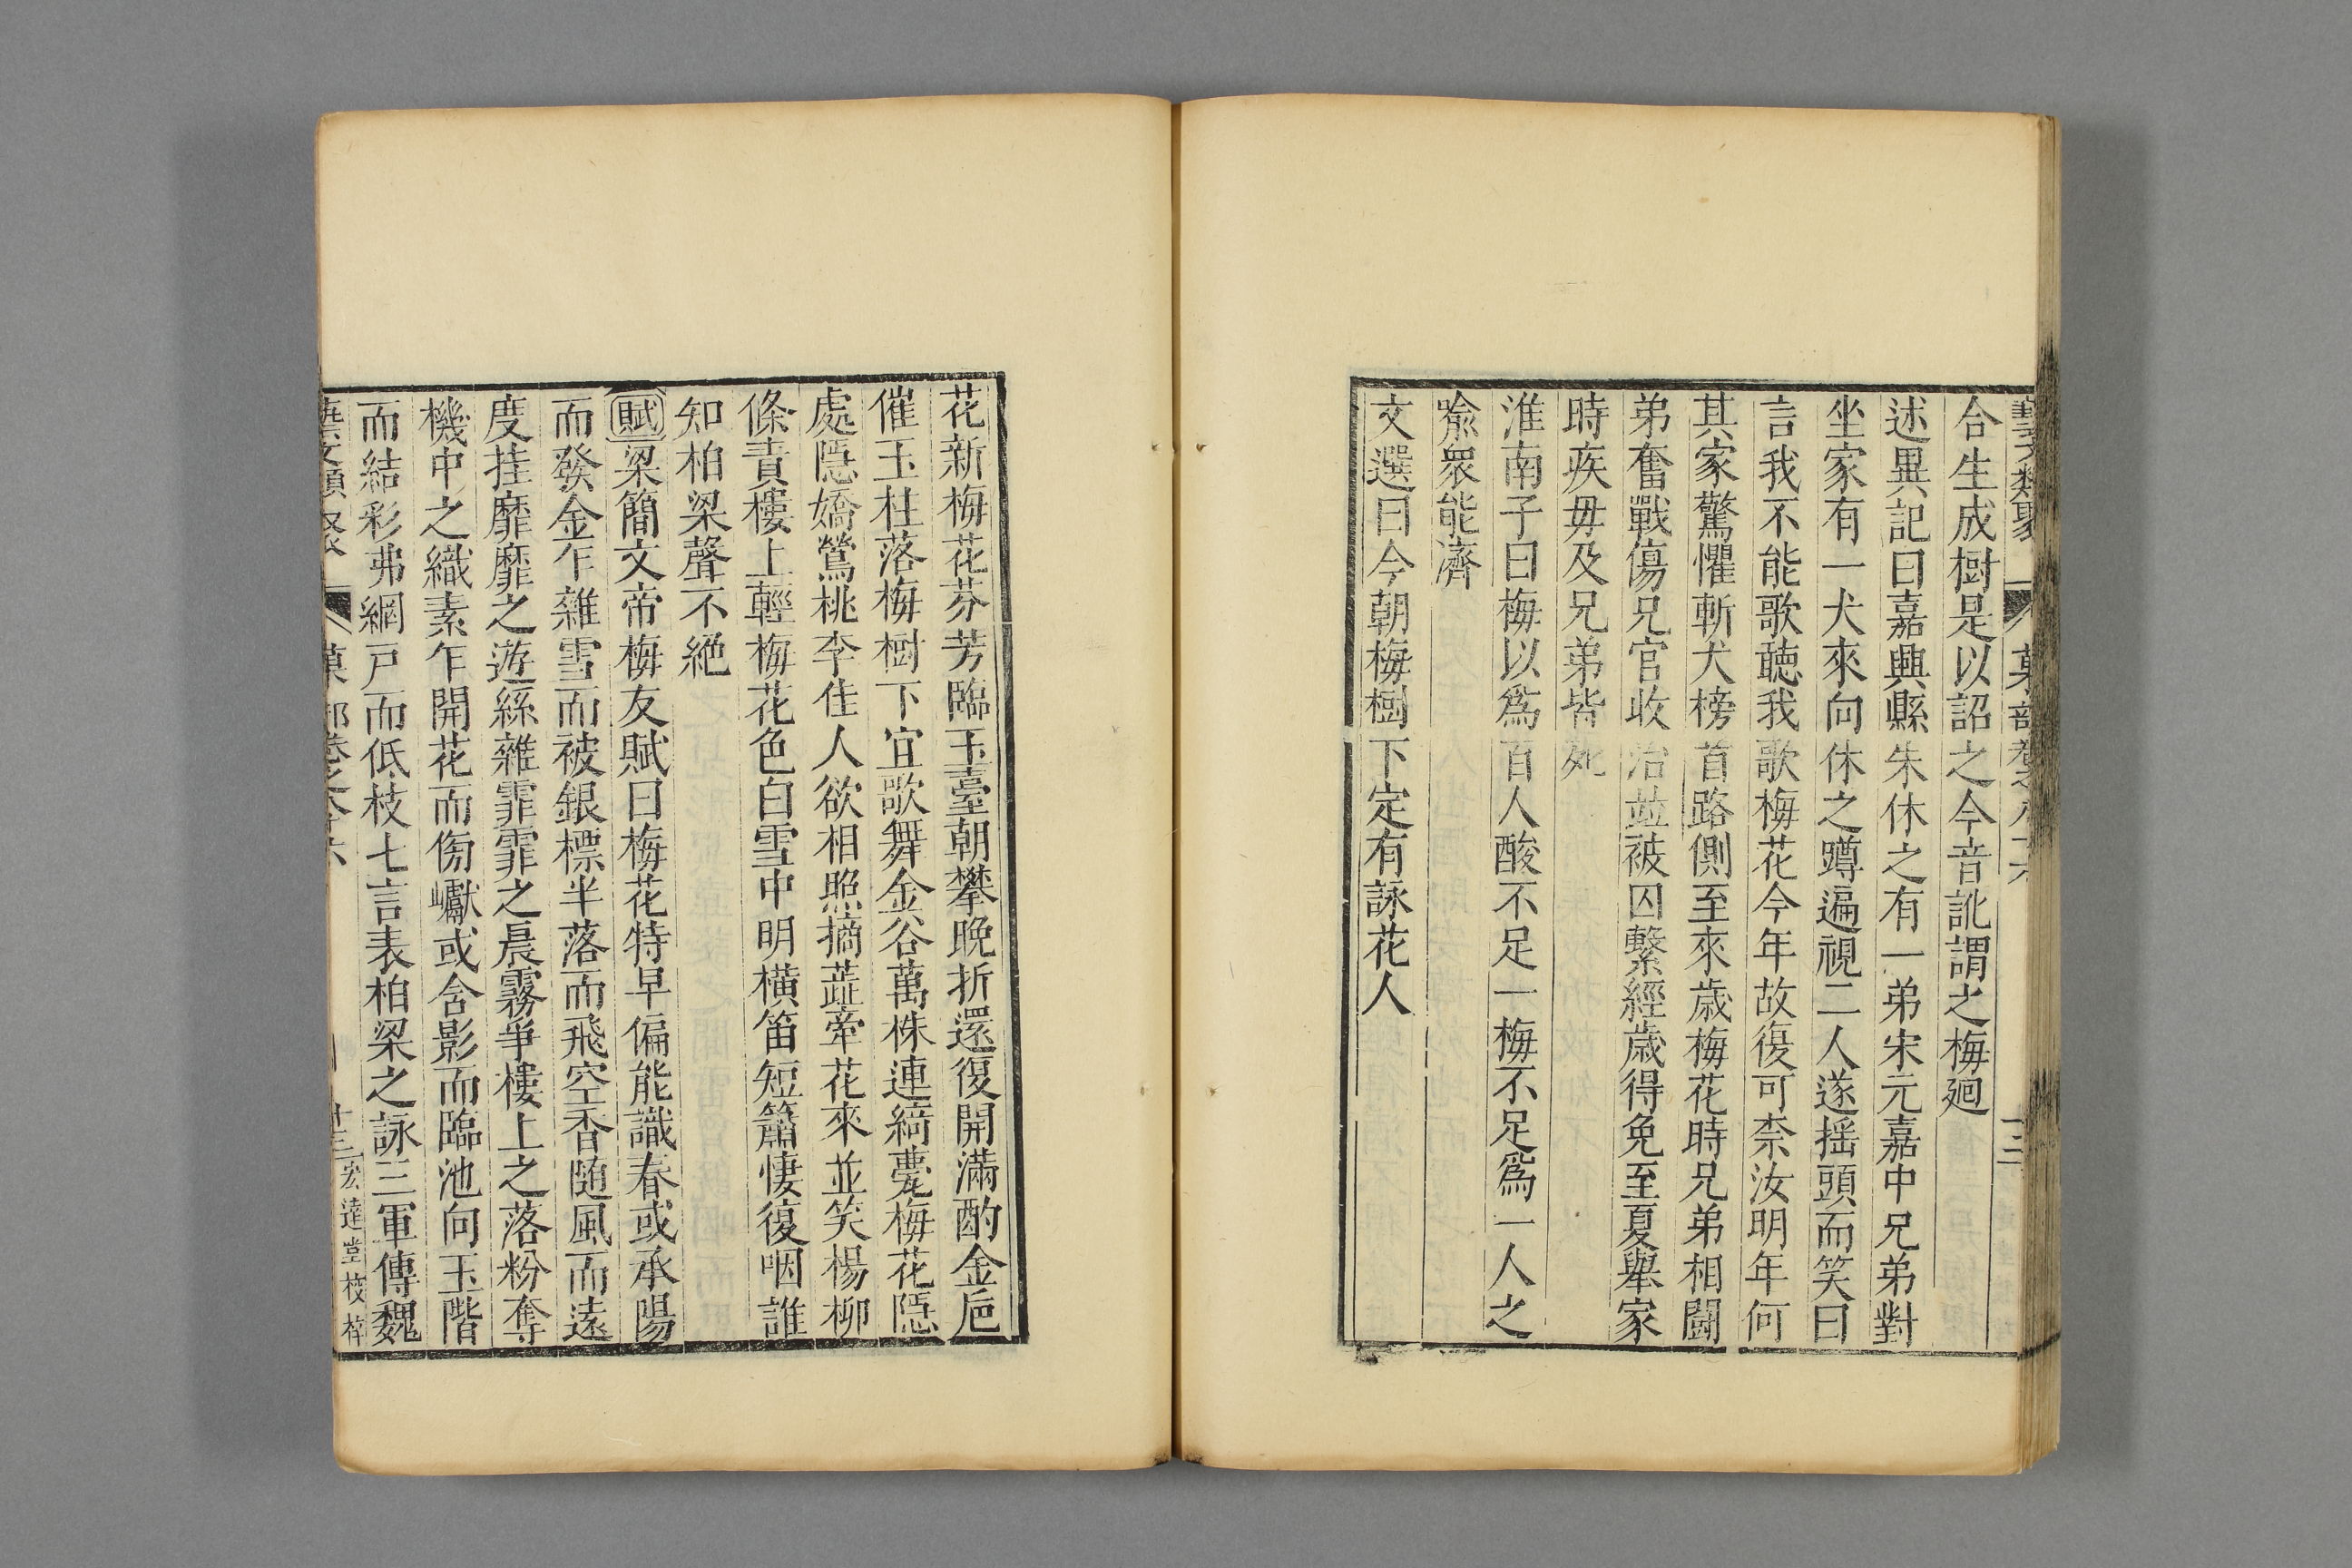 藝文類聚 菓部卷之八十六
合生成樹是以詔之今音訛謂之梅廻
述異記曰嘉興縣朱休之有一弟宋元嘉中兄弟對
坐家有一犬來向休之蹲遍視二人遂揺頭而笑曰
言我不能歌聽我歌梅花今年故復可柰汝明年何
其家驚懼斬犬榜首路側至來歳梅花時兄弟相鬪
弟奮戰傷兄官收治並被囚繫經歳得免至夏舉家
時疾毋及兄弟皆死
淮南子曰梅以爲百人酸不足一梅不足爲一人之
喻衆能濟
文選曰今朝梅樹下定有詠花人
花新梅花芬芳臨玉臺朝攀晚折還復開滿酌金巵
催玉柱落梅樹下宜歌舞金谷萬株連綺甍梅花隱
處隱嬌鶯桃李佳人欲相照摘蘂牽花來並笑楊柳
條責樓上輕梅花色白雪中明橫笛短簫悽復咽誰
知柏梁聲不絕
賦梁簡文帝梅友賦曰梅花特早偏能識春或承陽
而發金乍雜雪而被銀標半落而飛空香随風而遠
度挂靡靡之遊絲雜霏霏之晨霧爭樓上之落粉奪
機中之織素乍開花而傍巘或含影而臨池向玉階
而結彩弗網戸而低枝七言表柏梁之詠三軍傳魏
藝文類聚 菓部卷之八十六 十三 宏達堂校梓